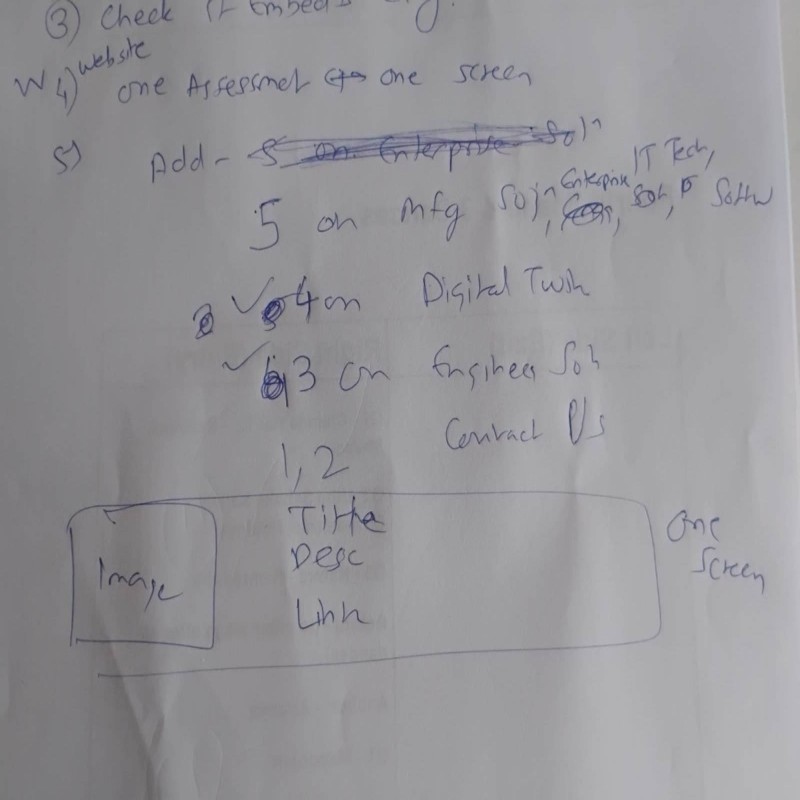 ③ Check If Embed
W 4) website
one Assessmet ↔ one screen
5) Add -
5 on Mfg Soln, Enterprise, IT Tech, Softw
✓ 4 on Digital Twin
✓ 3 on Engineer Soln
1, 2 Contact Us
Image
Title
Desc
Link
One
Screen